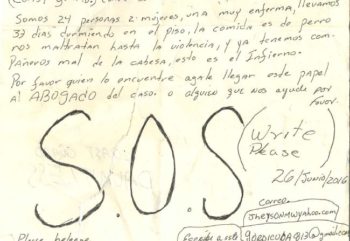 Somos 24 personas 2 mujeres, una muy enferma, llevamos
33 dias durmiendo en el piso, la comida es de perro
nos maltratan hasta la violencia, y ya tenemos com-
pañeros mal de la cabesa, esto es el Infierno.
Por favor quien lo encuentre agale llegar este papel
al ABOGADO del caso. o alguien que nos ayude por
favor.
S.O.S
(Write
Please
26/Junio/2016
correo